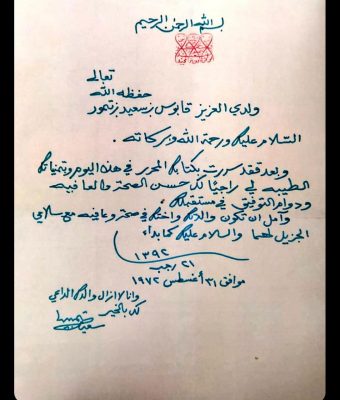 بسم الله الرحمن الرحيم
تعالى
حفظه الله
ولدي العزيز قابوس بن سعيد بن تيمور
السلام عليك ورحمة الله وبركاته .
وبعد فقد سررت بكتابك المحرر في هذا اليوم وتمنياتك
الطيبه لي راجيًا لك حسن الصحة والعافيه
ودوام التوفيق في مستقبلك
وآمل ان تكون والدتك واختك في صحة وعافيه مع سلامي
الجزيل لهما والسلام عليك كما بداء
١٣٩٢
٢١ رجب
موافق ٣١ أغسطس ١٩٧٢
وانا لا ازال والدك الداعي
لك بالخير
سعيد بن تيمور